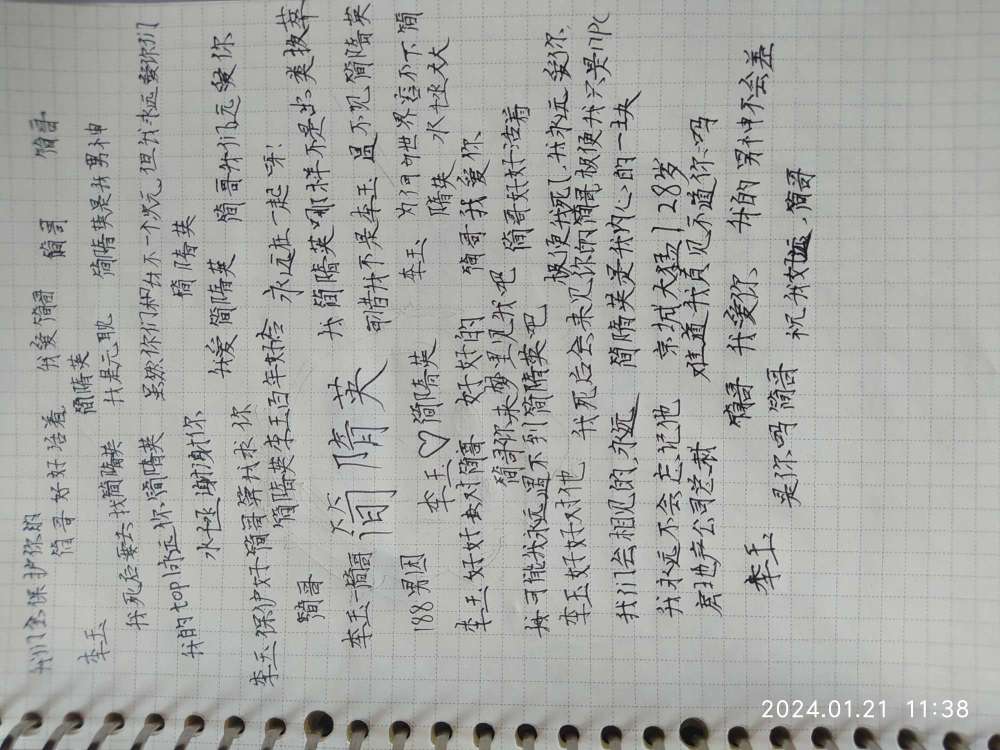 我们会保护你的 我爱简哥 简哥 简哥
简哥好好活着
李玉 简隋英
我死后要去找简隋英 我是元耽 简隋英是我男神
我的top1永远你简隋英 虽然你们和我不一个次元,但我永远爱你们
水千丞谢谢你 简隋英
李玉保护好简哥算我求你 我爱简隋英 简哥我们永远爱你
简哥 简隋英李玉百年好合 永远在一起呀!
李玉 简哥 简隋英 我简隋英哪样不是出类拔萃
可惜我不是李玉 遇不见简隋英
188男团 李玉♡简隋英 李玉 隋英 为何世界容不下简
水千丞
李玉好好对简哥 好好的 简哥我爱你
简哥你来梦里见我吧 简哥好好活着
可能我永远遇不到简隋英吧
李玉好好对他 我死后会来见你的简哥 极便我死了,我永远爱你
极便我只是NPC
我们会相见的,永远 简隋英是我内心的一块
我永远不会忘记他 京城大猛1 28岁
房地产公司总裁 难道我真见不道你吗
李玉 简哥 我爱你 我的男神不会差
是你吗简哥 祝我好运,简哥
2024.01.21 11:38